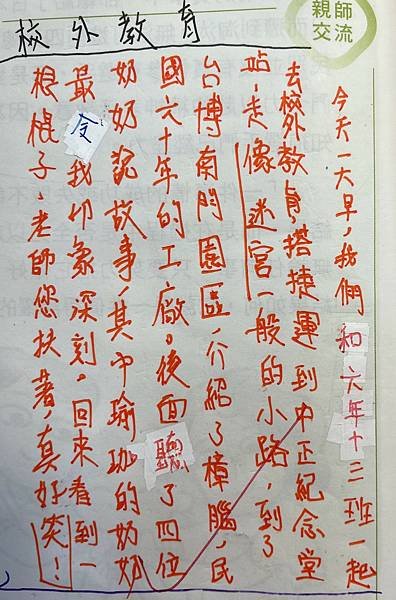 親師
交流
校外教育
今天一大早，我們和六年十三班一起
去校外教育，搭捷運到中正紀念堂
站，走像迷宮一般的小路，到了
台博南門園區，介紹了樟腦，民
國六十年的工廠。後面聽了四位
奶奶說故事，其中瑜珈的奶奶
最令我印象深刻。回來看到一
根棍子、老師您扶著，真好笑！